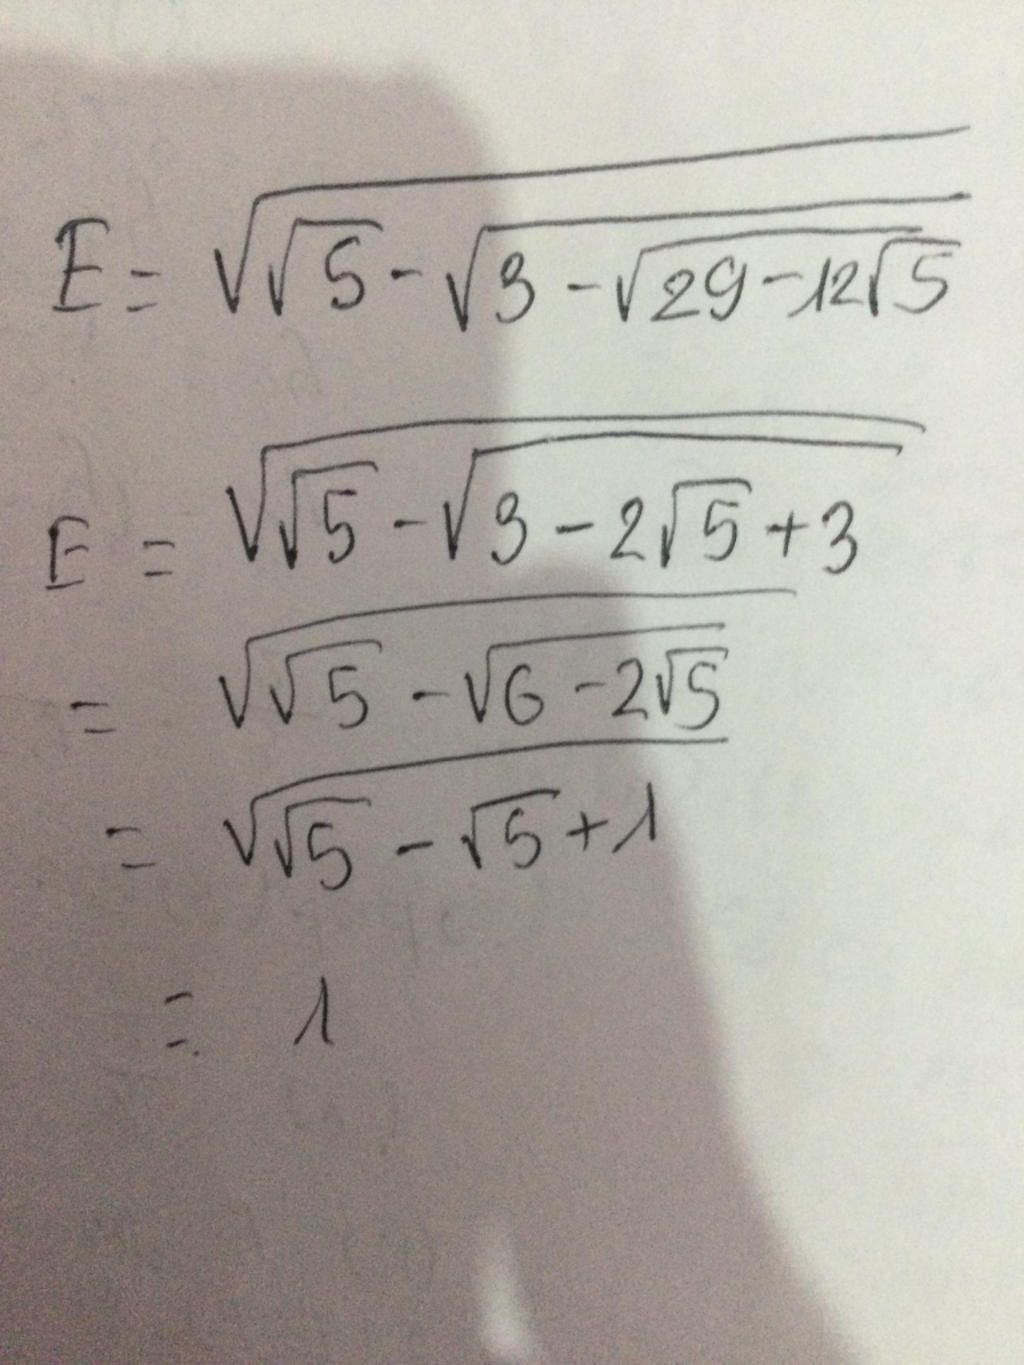 E = √(√5 - √(3 - √(29 - 12√5)))
E = √(√5 - √(3 - 2√5 + 3))
= √(√5 - √(6 - 2√5))
= √(√5 - √5 + 1)
= 1